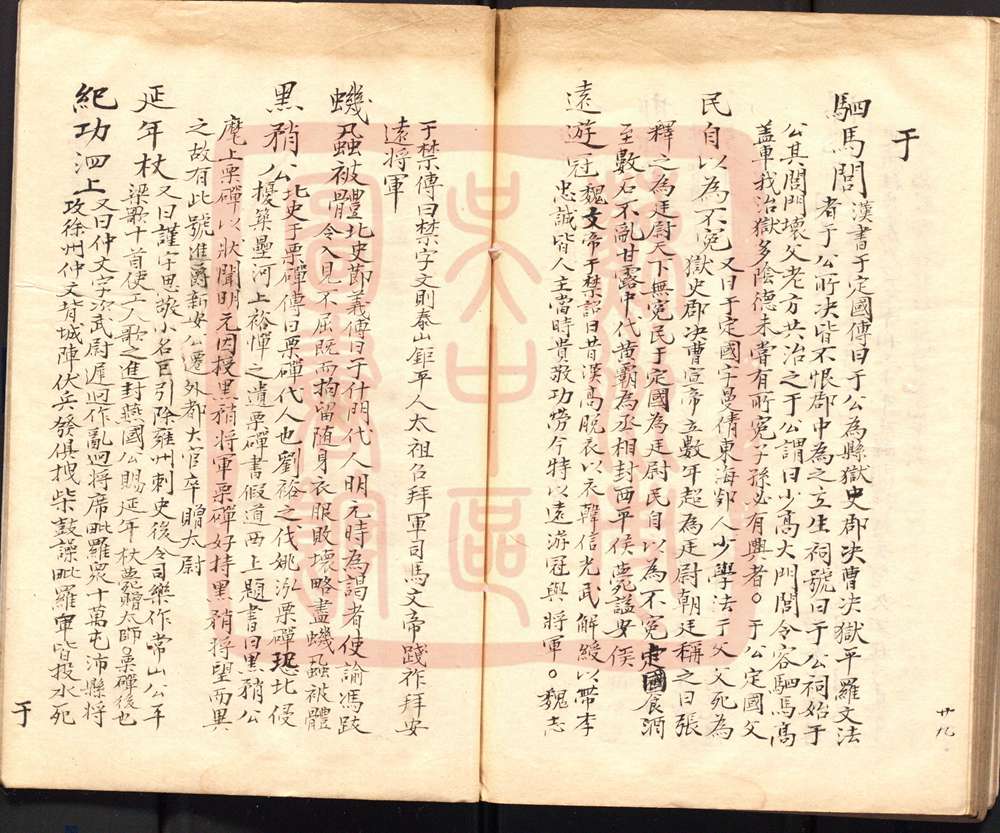 于
駟馬閎 漢書于定國傳曰于公為縣獄史郡決曹決獄平羅文法
者于公所決皆不恨郡中為之立生祠號曰于公祠始于
公其閭門壞父老方共治之于公謂曰少高大門閭令容駟馬高
盖車我治獄多陰德未嘗有所冤子孫必有興者。于公定國父
民自以為不冤 又曰于定國字曼倩東海郯人少學法于父父死為
獄史郡決曹宣帝立數年起為廷尉朝廷稱之曰張
釋之為廷尉天下無冤民于定國為廷尉民自以為不冤定國食酒
至數石不亂甘露中代黄霸為丞相封西平侯薨諡安侯
遠遊冠 魏文帝于禁詔曰昔漢高脱衣以衣韓信光武解綬以帶李
忠誠皆人主當時貴敬功勞今特以遠游冠與將軍。魏志
于禁傳曰禁字文則泰山鉅平人太祖召拜軍司馬文帝踐祚拜安
遠將軍
蟣蝨被體 北史節義傳曰于什門代人明元時為謁者使諭馮跋
令入見不屈既而拘留随身衣服敗壞略盡蟣蝨被體
黑矟公 北史于栗磾傳曰栗磾代人也劉裕之伐姚泓栗磾恐北侵
擾築壘河上裕憚之遺栗磾書假道西上題書曰黑矟公
麾上栗磾以狀聞明元因授黑矟將軍栗磾好持黑矟將望而異
之故有此號進爵新安公遷外都大官卒贈太尉
延年杖 又曰謹字思敬小名巨引除雍州刺史後令司樂作常山公平
梁歌十首使工人歌之進封燕國公賜延年杖薨贈太師。栗磾後也
紀功泗上 又曰仲文字次武尉遲迥作亂迥將席毗羅眾十萬屯沛縣將
攻徐州仲文背城陣伏兵發俱拽柴鼓譟毗羅軍皆投水死
廿九
于